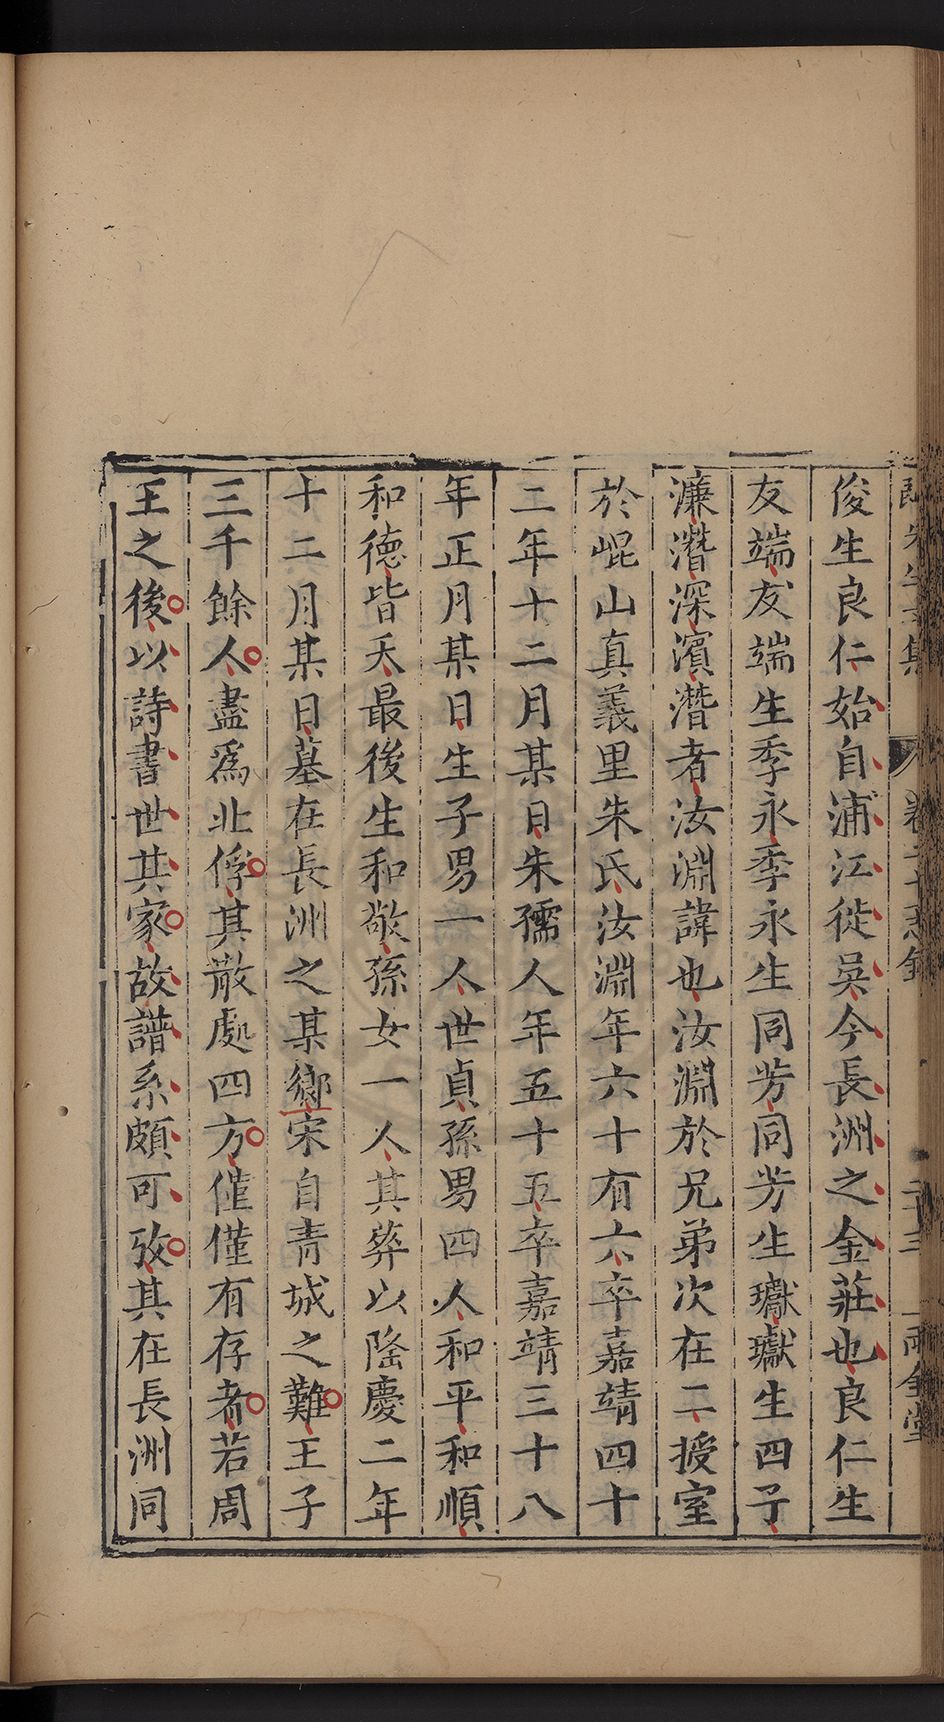 俊生良仁始自浦江徙吳今長洲之金莊也良仁生
友端友端生季永季永生同芳同芳生瓛瓛生四子
濂濳深濱濳者汝淵諱也汝淵於兄弟次在二授室
於崐山真義里朱氏汝淵年六十有六卒嘉靖四十
二年十二月某日朱孺人年五十五卒嘉靖三十八
年正月某日生子男一人世貞孫男四人和平和順
和德皆夭最後生和敬孫女一人其葬以隆慶二年
十二月某日墓在長洲之某鄉宋自青城之難王子
三千餘人盡爲北俘其散處四方僅僅有存者若周
王之後以詩書世其家故譜系頗可攷其在長洲同